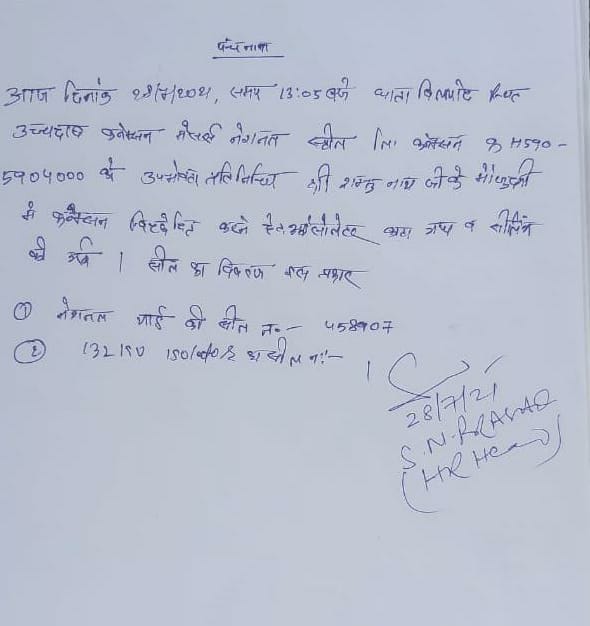 पंचनामा
आज दिनांक 28/7/2021, समय 13:05 बजे थाना स्थित
उच्चदाब कनेक्शन मेसर्स नेशनल स्टील लि कनेक्शन क्र H590-
5904000 के उपभोक्ता प्रतिनिधि श्री शम्भु नाथ जी के मौजूदगी
में कनेक्शन विच्छेदित करने हेतु आइसोलेटर काटा गया व सीलिंग
की गई । सील का विवरण इस प्रकार
① नेशनल यार्ड की सील नं.- 458907
② 132 ISO का सील नं:-
28/7/21
S.N. PRASAD
(HR Head)